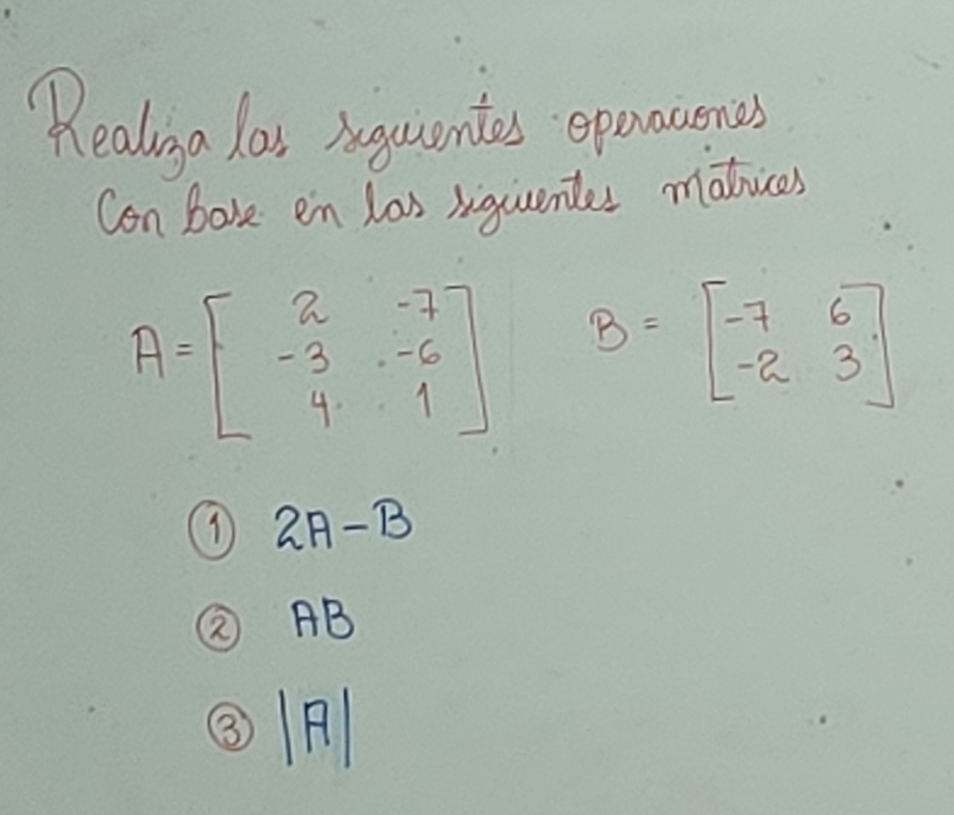 Realiza las siguientes operaciones
Con base en las siguientes matrices
A = [ 2 -7
-3 -6
4 1 ]
B = [ -7 6
-2 3 ]
① 2A - B
② AB
③ |A|